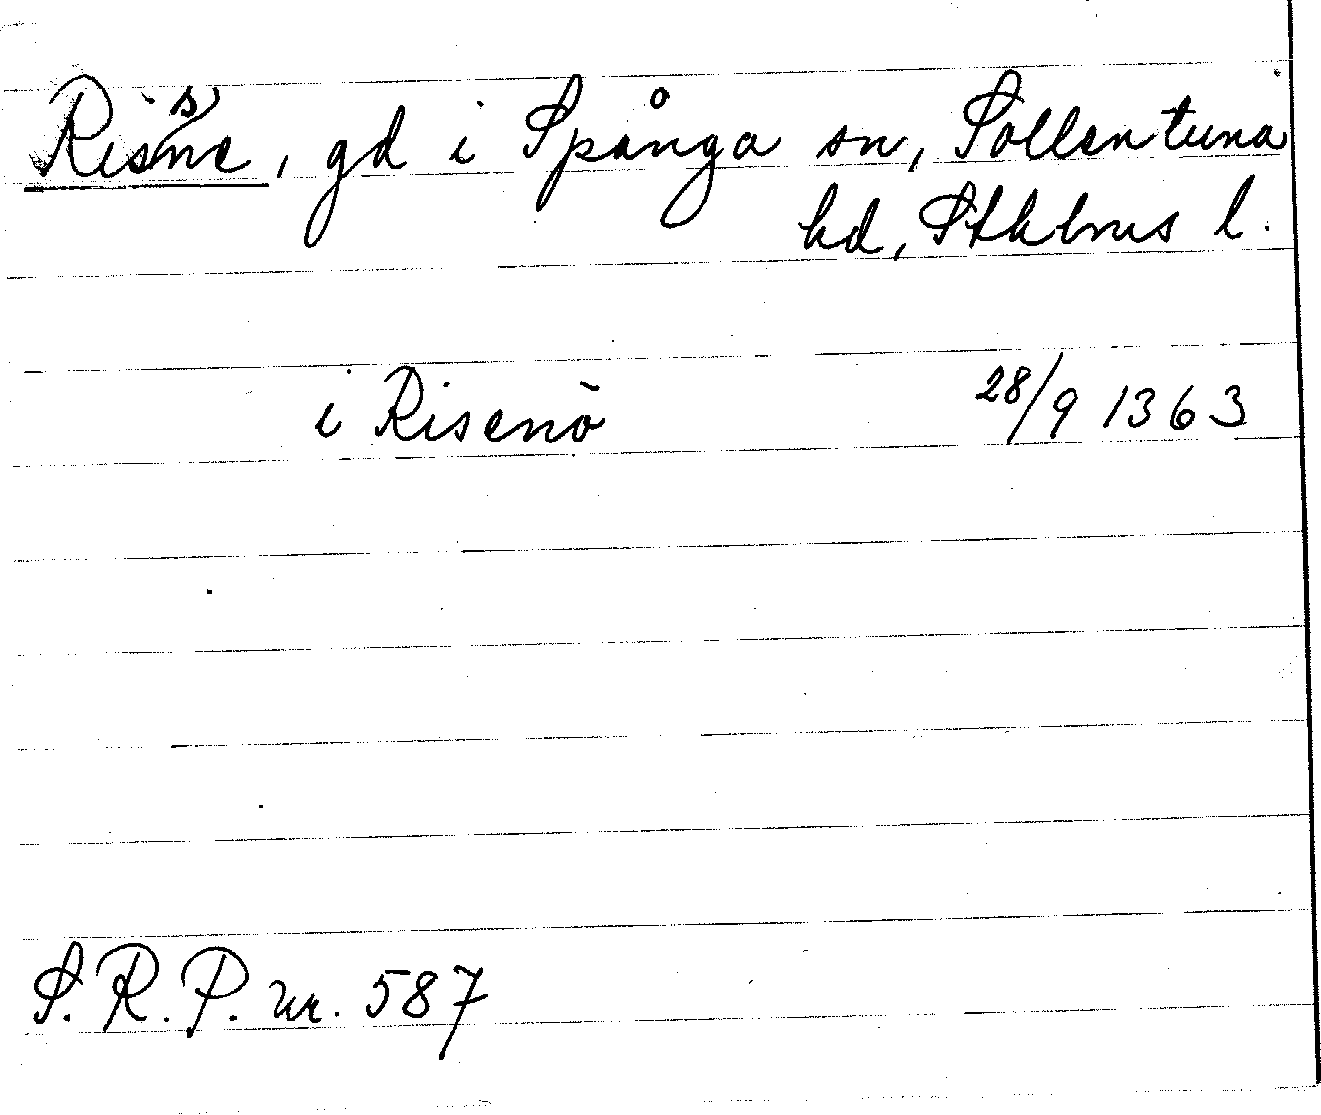 Rissne, gd i Spånga sn, Sollentuna
hd, Sthlms l.
i Risenö 28/9 1363
S.R.P. nr. 587